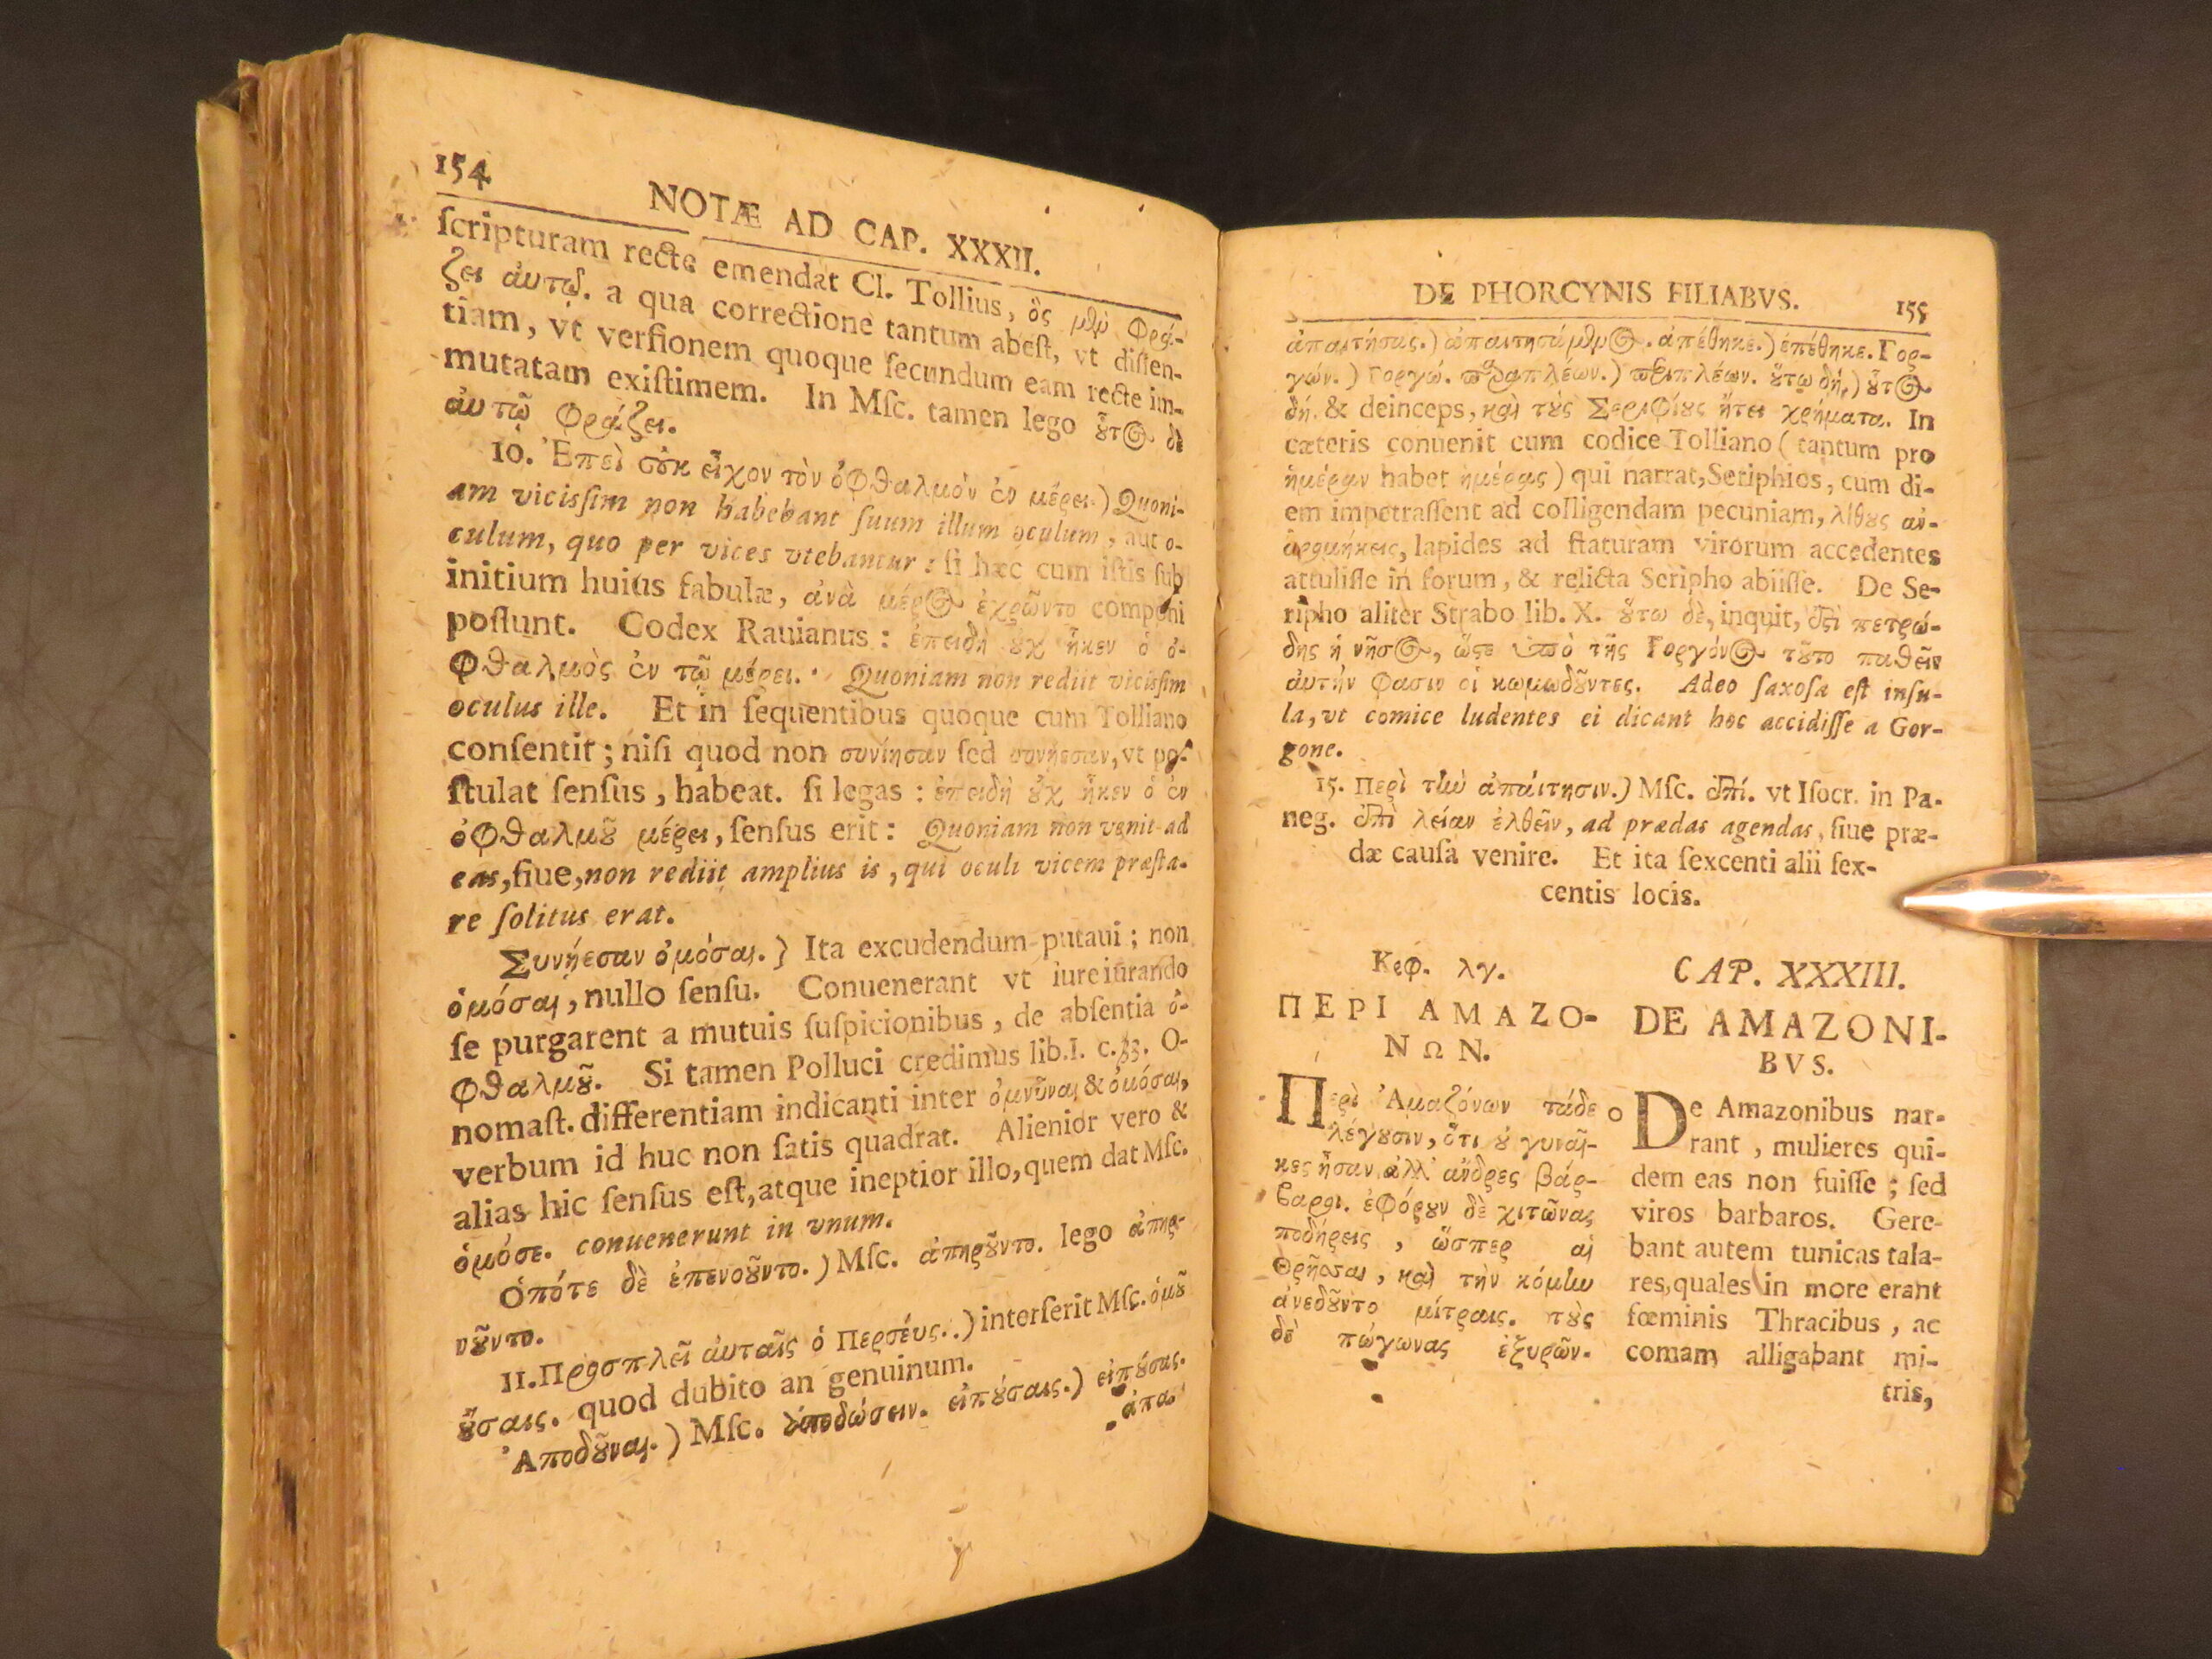 154
NOTÆ AD CAP. XXXII.
ſcripturam recte emendat Cl. Tollius, ὃς μὲν φρά-
ζει ἀυτῷ. a qua correctione tantum abeſt, vt diſſen-
tiam, vt verſionem quoque ſecundum eam recte im-
mutatam exiſtimem. In Mſc. tamen lego οὗτος δὲ
ἀυτῷ φράζει.
10. Ἐπεὶ οὐκ εἶχον τὸν ὀφθαλμὸν ἐν μέρει.) Quoni-
am vicisſim non habebant ſuum illum oculum, aut o-
culum, quo per vices vtebantur: ſi hæc cum iſtis ſub
initium huius fabulæ, ἀνὰ μέρος ἐχρῶντο componi
poſſunt. Codex Rauianus: ἐπειδὴ οὐχ ἧκεν ὁ ὀ-
φθαλμὸς ἐν τῷ μέρει. Quoniam non rediit vicisſim
oculus ille. Et in ſequentibus quoque cum Tolliano
conſentit; niſi quod non συνίησαν ſed συνήεσαν, vt po-
ſtulat ſenſus, habeat. ſi legas: ἐπειδὴ οὐχ ἧκεν ὁ ἐν
ὀφθαλμοῦ μέρει, ſenſus erit: Quoniam non venit ad
eas, ſiue, non rediit amplius is, qui oculi vicem præſta-
re ſolitus erat.
Συνήεσαν ὀμόσαι.) Ita excudendum putaui; non
ὁμόσαι, nullo ſenſu. Conuenerant vt iureiurando
ſe purgarent a mutuis ſuſpicionibus, de abſentia ὀ-
φθαλμοῦ. Si tamen Polluci credimus lib. I. c. 33. O-
nomaſt. differentiam indicanti inter ὀμνῦναι & ὀμόσαι,
verbum id huc non ſatis quadrat. Alienior vero &
alias hic ſenſus eſt, atque ineptior illo, quem dat Mſc.
ὁμόσε. conuenerunt in vnum.
Ὁπότε δὲ ἐπενοοῦντο.) Mſc. ἀπηροῦντο. lego ἀπηρ-
νοῦντο.
11. Προσπλεῖ ἀυταῖς ὁ Περσέυς..) interſerit Mſc. ὁμοῦ
οὔσαις. quod dubito an genuinum.
Ἀποδοῦναι.) Mſc. ἀποδώσειν. εἰπούσαις.) εἰπούσας.
ἀπαι-
DE PHORCYNIS FILIABVS.
155
ἀπαιτήσας.) ἀπαιτησάμενος. ἀπέθηκε.) ἐπέθηκε. Γορ-
γών.) Γοργώ. παραπλέων.) περιπλέων. οὕτω δή.) οὗτος
δή. & deinceps, καὶ τοὺς Σεριφίους ᾔτει χρήματα. In
cæteris conuenit cum codice Tolliano (tantum pro
ἡμέραν habet ἡμέρας) qui narrat, Seriphios, cum di-
em impetraſſent ad colligendam pecuniam, λίθους ἀν-
δρομήκεις, lapides ad ſtaturam virorum accedentes
attuliſſe in forum, & relicta Seripho abiiſſe. De Se-
ripho aliter Strabo lib. X. οὕτω δὲ, inquit, ἐστὶ πετρώ-
δης ἡ νῆσος, ὥστε ὑπὸ τῆς Γοργόνος τοῦτο παθεῖν
ἀυτήν φασιν οἱ κωμωδοῦντες. Adeo ſaxoſa eſt inſu-
la, vt comice ludentes ei dicant hoc accidiſſe a Gor-
gone.
15. Περὶ τὴν ἀπάιτησιν.) Mſc. ἐπί. vt Iſocr. in Pa-
neg. ἐπὶ λείαν ἐλθεῖν, ad prædas agendas, ſiue præ-
dæ cauſa venire. Et ita ſexcenti alii ſex-
centis locis.
Κεφ. λγ.
ΠΕΡΙ ΑΜΑΖΟ-
ΝΩΝ.
Περὶ Ἀμαζόνων τάδε
λέγουσιν, ὅτι οὐ γυναῖ-
κες ἦσαν ἀλλ᾽ ἄνδρες βάρ-
βαροι. ἐφόρουν δὲ χιτῶνας
ποδήρεις, ὥσπερ αἱ
Θρῆσσαι, καὶ τὴν κόμην
ἀνεδοῦντο μίτραις. τοὺς
δὲ πώγωνας ἐξυρῶν-
CAP. XXXIII.
DE AMAZONI-
BVS.
De Amazonibus nar-
rant, mulieres qui-
dem eas non fuiſſe; ſed
viros barbaros. Gere-
bant autem tunicas tala-
res, quales in more erant
fœminis Thracibus, ac
comam alligabant mi-
tris,